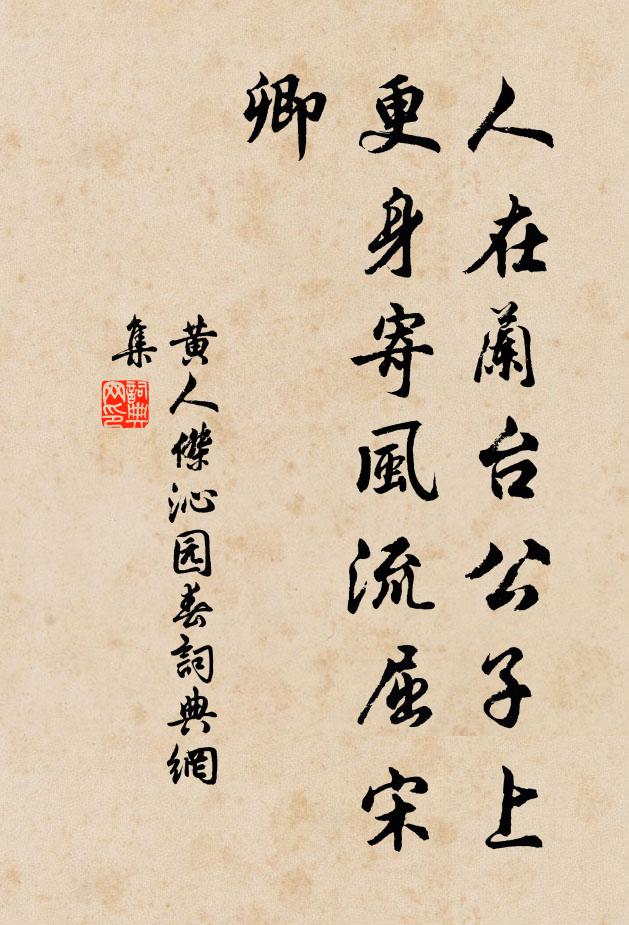 人在蘭台公子上
更身寄風流屈宋
卿
黄人傑沁园春詞典網
集
詞典
网印